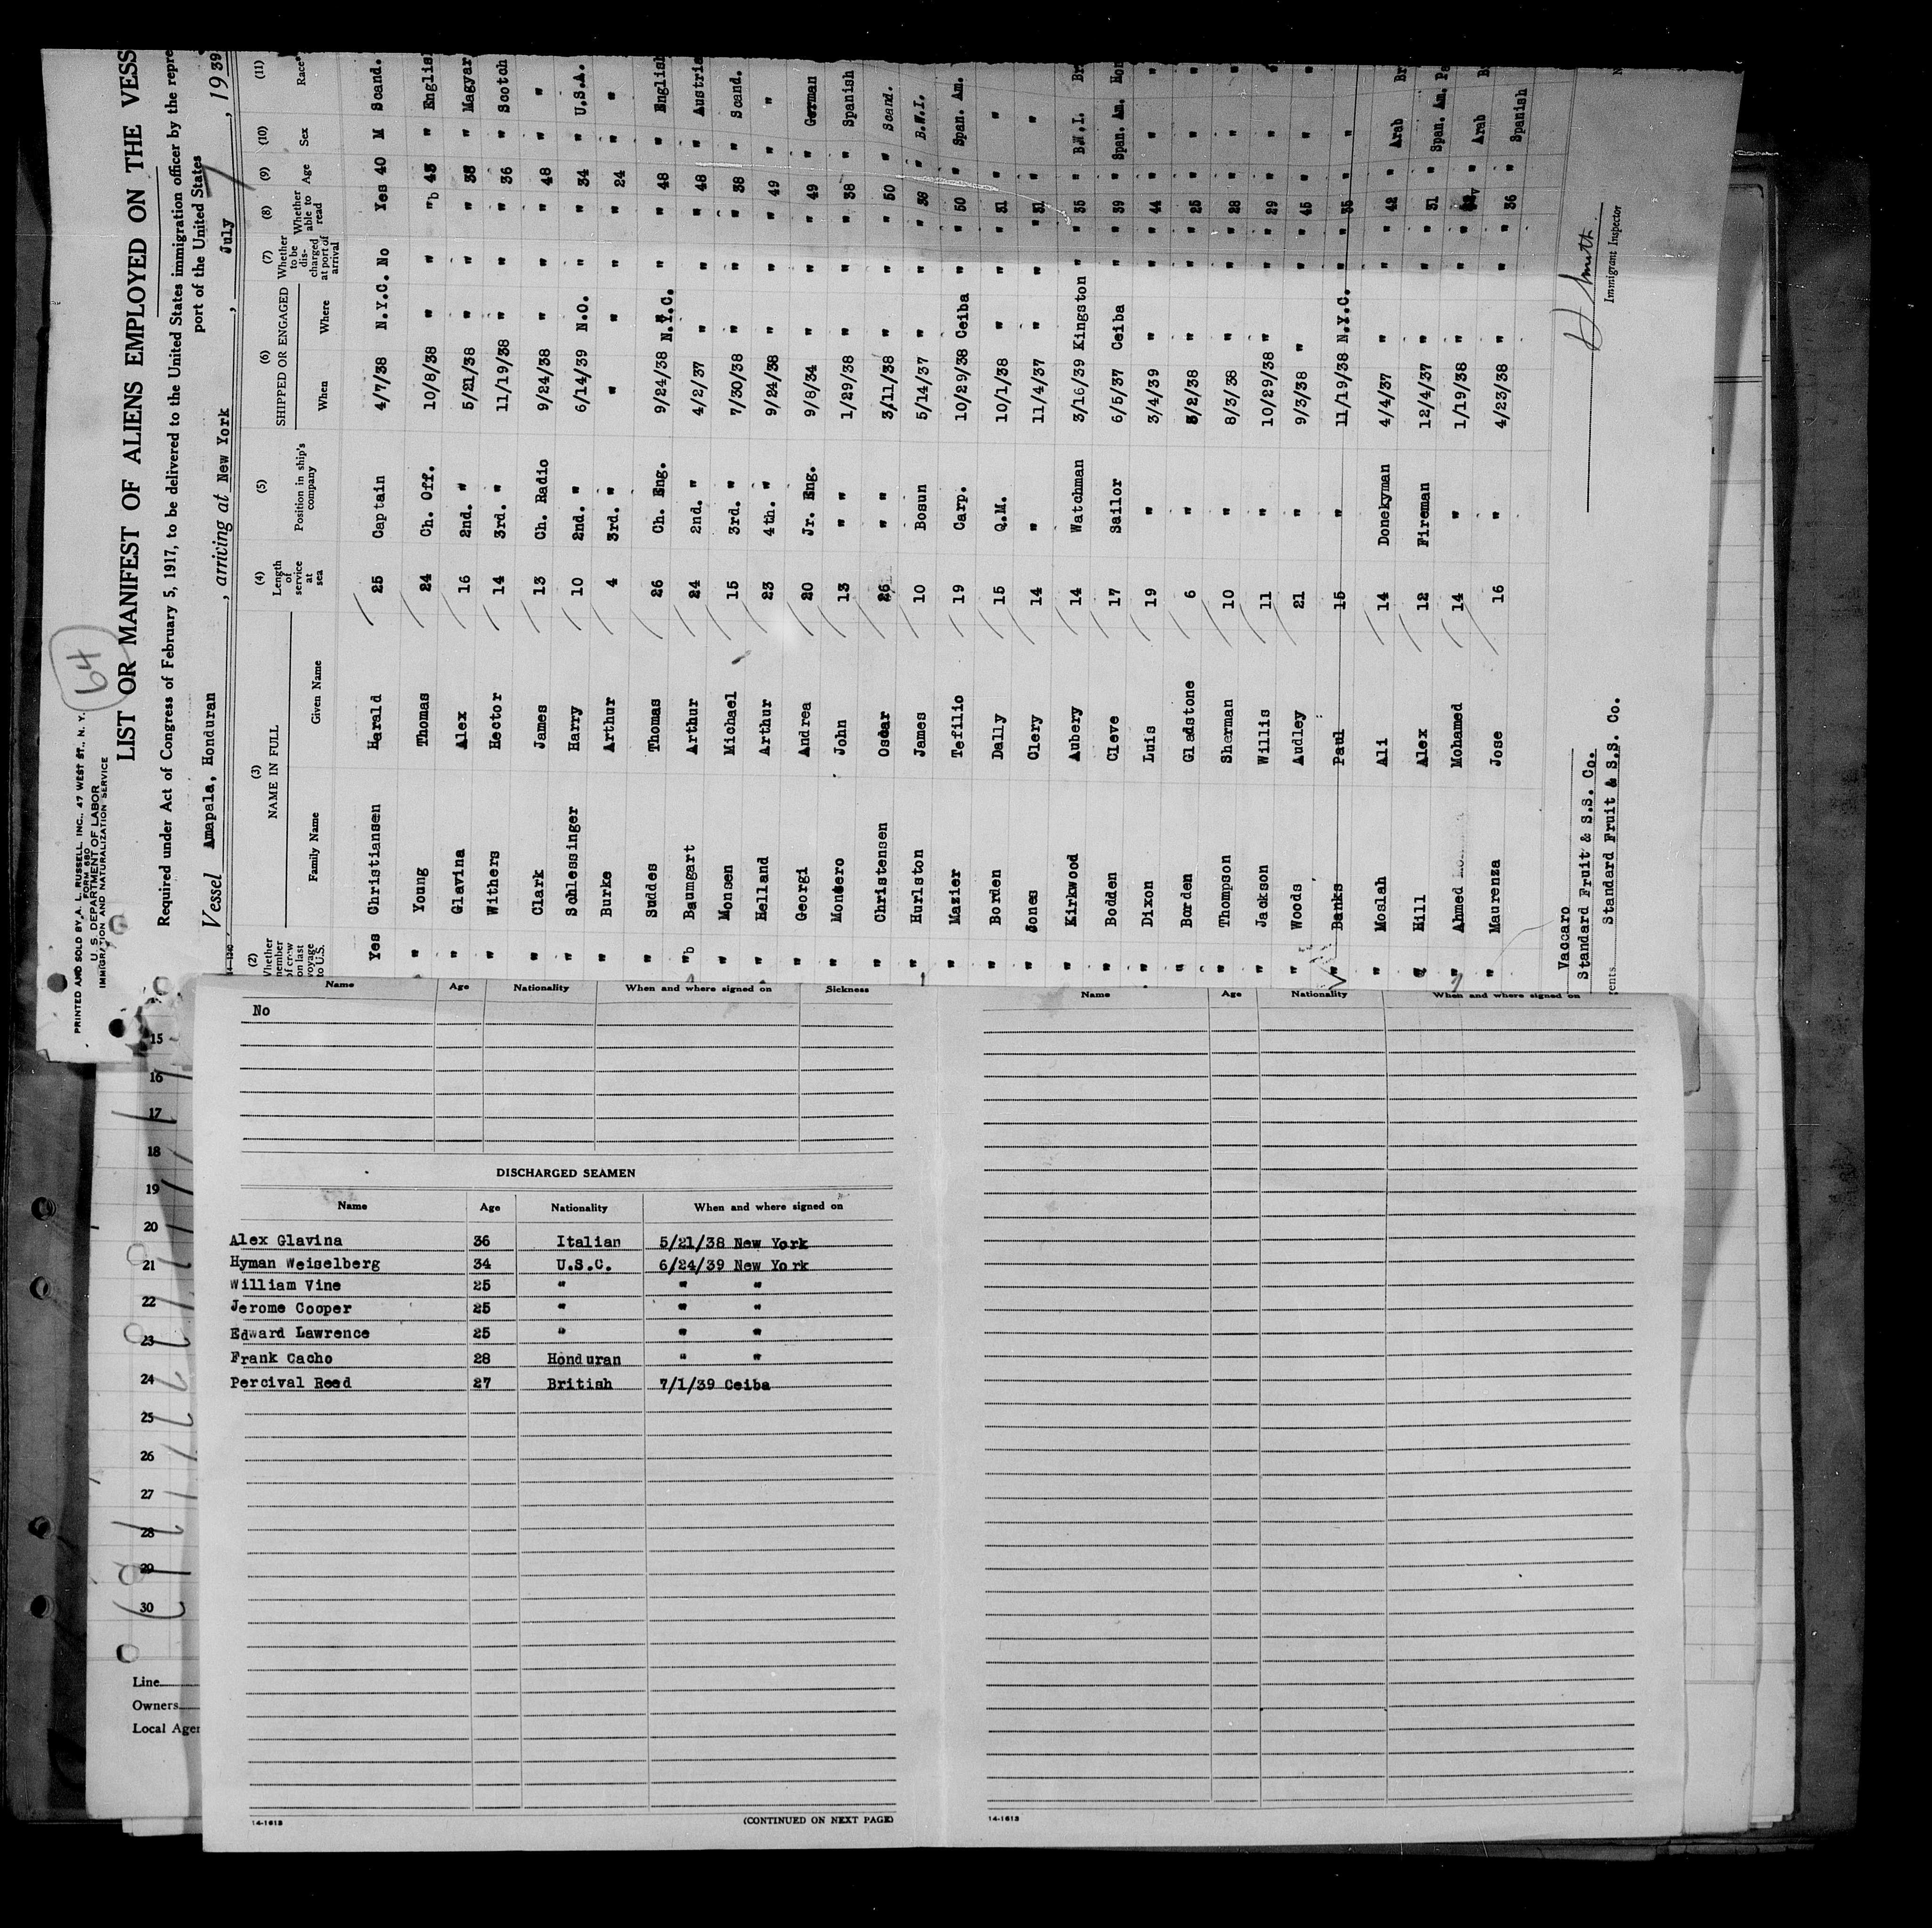 PRINTED AND SOLD BY A. L. RUSSELL, INC., 47 WEST ST., N. Y.
FORM 680
U. S. DEPARTMENT OF LABOR
IMMIGRATION AND NATURALIZATION SERVICE
64
LIST OR MANIFEST OF ALIENS EMPLOYED ON THE VESS
Required under Act of Congress of February 5, 1917, to be delivered to the United States immigration officer by the repre
port of the United States
Vessel Amapala, Honduran , arriving at New York , July 7 , 1939
(2) (3) (4) (5) (6) (7) (8) (9) (10) (11)
Whether member of crew on last voyage to U.S. NAME IN FULL Family Name Given Name Length of service at sea Position in ship's company SHIPPED OR ENGAGED When Where Whether to be discharged at port of arrival Whether able to read Age Sex Race*
Yes Christiansen Harald 25 Captain 4/7/38 N.Y.C. No Yes 40 M Scand.
" Young Thomas 24 Ch. Off. 10/8/38 " " "b 43 " Englis
" Glavina Alex 16 2nd. " 5/21/38 " " " 35 " Magyar
" Withers Hector 14 3rd. " 11/19/38 " " " 36 " Scotch
" Clark James 13 Ch. Radio 9/24/38 " " " 48 " "
" Schlessinger Harry 10 2nd. " 6/14/39 N.O. " " 34 " U.S.A.
" Burke Arthur 4 3rd. " " " " " 24 " "
" Suddes Thomas 26 Ch. Eng. 9/24/38 N.Y.C. " " 48 " English
"b Baumgart Arthur 24 2nd. " 4/2/37 " " " 48 " Austria
" Monsen Michael 15 3rd. " 7/30/38 " " " 38 " Scand.
" Helland Arthur 23 4th. " 9/24/38 " " " 49 " "
" Georgi Andrea 20 Jr. Eng. 9/8/34 " " " 49 " German
" Montero John 13 " " 1/29/38 " " " 38 " Spanish
" Christensen Oscar 26 " " 3/11/38 " " " 50 " Scand.
" Hurlston James 10 Bosun 5/14/37 " " " 38 " B.W.I.
" Mazier Tefilio 19 Carp. 10/29/38 Ceiba " " 50 " Span. Am.
" Borden Dally 15 Q.M. 10/1/38 " " " 31 " "
" Jones Clery 14 " 11/4/37 " " " 31 " "
" Kirkwood Aubery 14 Watchman 3/16/39 Kingston " " 35 " B.W.I. Br
" Bodden Cleve 17 Sailor 6/5/37 Ceiba " " 39 " Span. Am. Hon
" Dixon Luis 19 " 3/4/39 " " " 44 " " "
" Borden Gladstone 6 " 3/2/38 " " " 25 " " "
" Thompson Sherman 10 " 8/3/38 " " " 28 " " "
" Jackson Willis 11 " 10/29/38 " " " 29 " " "
" Woods Audley 21 " 9/3/38 " " " 45 " " "
" Banks Paul 15 " 11/19/38 N.Y.C. " " 35 " "
" Moslah Ali 14 Donekyman 4/4/37 " " " 42 " Arab Br
" Hill Alex 12 Fireman 12/4/37 " " " 31 " Span. Am. Pa
" Ahmed Mohamed 14 " 1/19/38 " " " " Arab B
" Maurenza Jose 16 " 4/23/38 " " " 36 " Spanish
Vaccaro
Standard Fruit & S.S. Co.
ents Standard Fruit & S.S. Co.
D Smith
Immigrant Inspector
15
16
17
18
19
20
21
22
23
24
25
26
27
28
29
30
Line
Owners
Local Agen
Name Age Nationality When and where signed on Sickness
No
DISCHARGED SEAMEN
Name Age Nationality When and where signed on
Alex Glavina 36 Italian 5/21/38 New York
Hyman Weiselberg 34 U.S.C. 6/24/39 New York
William Vine 25 " " "
Jerome Cooper 25 " " "
Edward Lawrence 25 " " "
Frank Cacho 28 Honduran " "
Percival Reed 27 British 7/1/39 Ceiba
14-1613 (CONTINUED ON NEXT PAGE)
Name Age Nationality When and where signed on
14-1613